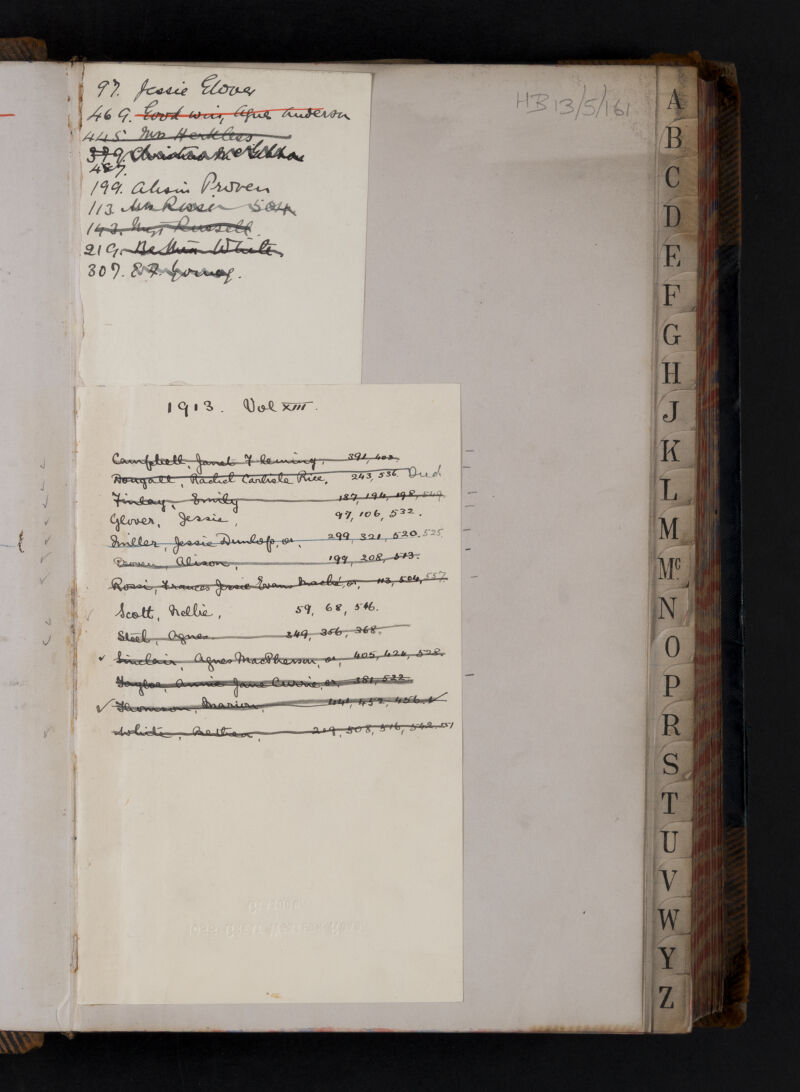 97. Jessie Glover
469. Goodwin, Agnes Anderson
445 Mrs Herkless
379. Christina McGibbon
487.
199. Alison Proven
113 Mrs Rossi 504
143. Mrs Russell.
219. Bethia White
307. Young.
HB 13/5/161
1913. Vol XIII.
Campbell, Janet Fleming, 391, 402.
Dougall, Rachel Carlisle Rice, 243, 536. Died
Finlay, Emily 187, 194, 198, 549
Glover, Jessie, 97, 106, 532.
Miller, Jessie Dunlop, or, 299, 321, 520. 525.
Proven, Alison, 199, 208, 513.
Rossi, Frances Jessie Evans or, 113, 504, 557
Scott, Nellie, 59, 68, 546.
Steel, Agnes 349, 356, 368.
✓ Sinclair, Agnes MacPherson, or, 405, 424, 528.
Taylor, Annie Jane Currie, or, 181, 522
✓ Thomson, Marion, 441, 452, 456.
White, Bethia, 219, 508, 516, 542.
A
B
C
D
E
F
G
H
J
K
L
M
Mc.
N
O
P
R
S
T
U
V
W
Y
Z